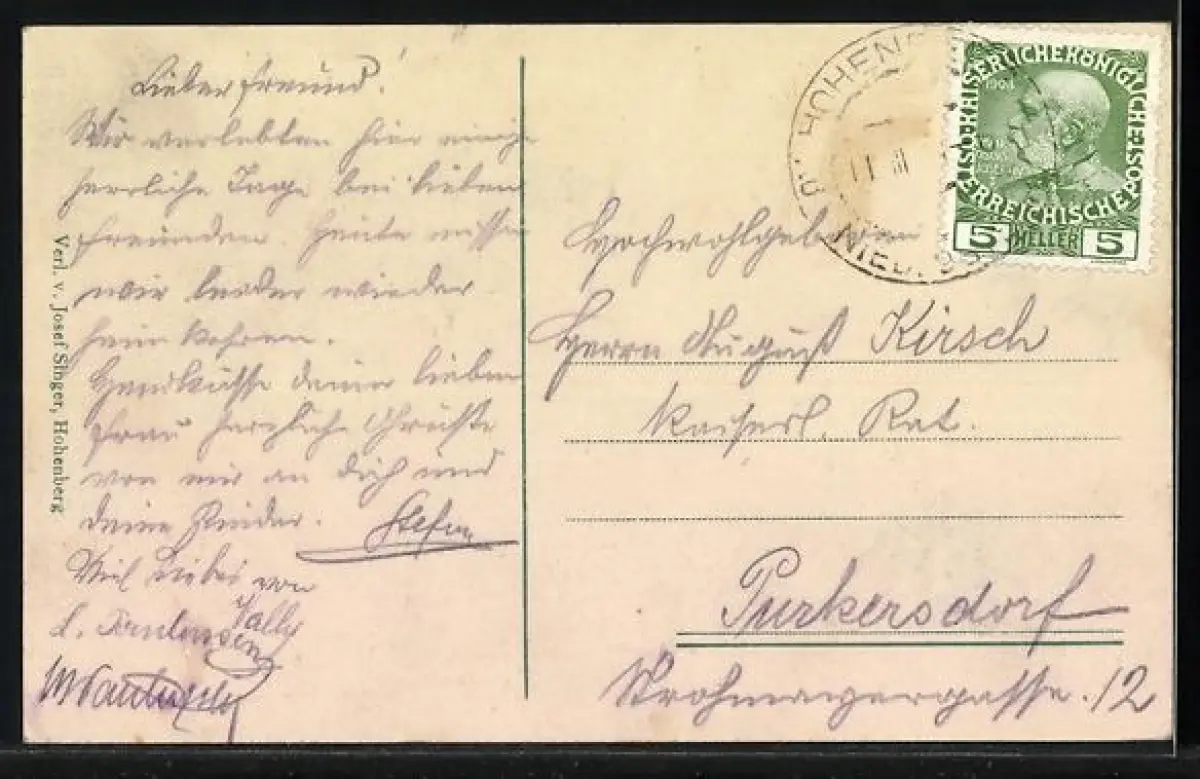 Lieber Freund!
Wir verlebten hier einige
herrliche Tage bei lieben
Freunden. Heute müssen
wir leider wieder
heim kehren.
Handküsse deiner lieben
Frau herzliche Grüsse
von mir an dich und
deine Kinder. Stefan
Viel Liebes von
Vally
Verl. v. Josef Singer, Hohenberg
HOHENB
11 III
NIED. ÖS
1908
KAISERLICHE KÖNIGLICHE ÖSTERREICHISCHE POST
5 HELLER 5
Hochwohlgeboren
Herrn August Kirsch
Kaiserl. Rat.
Purkersdorf
Wrohmayergasse. 12